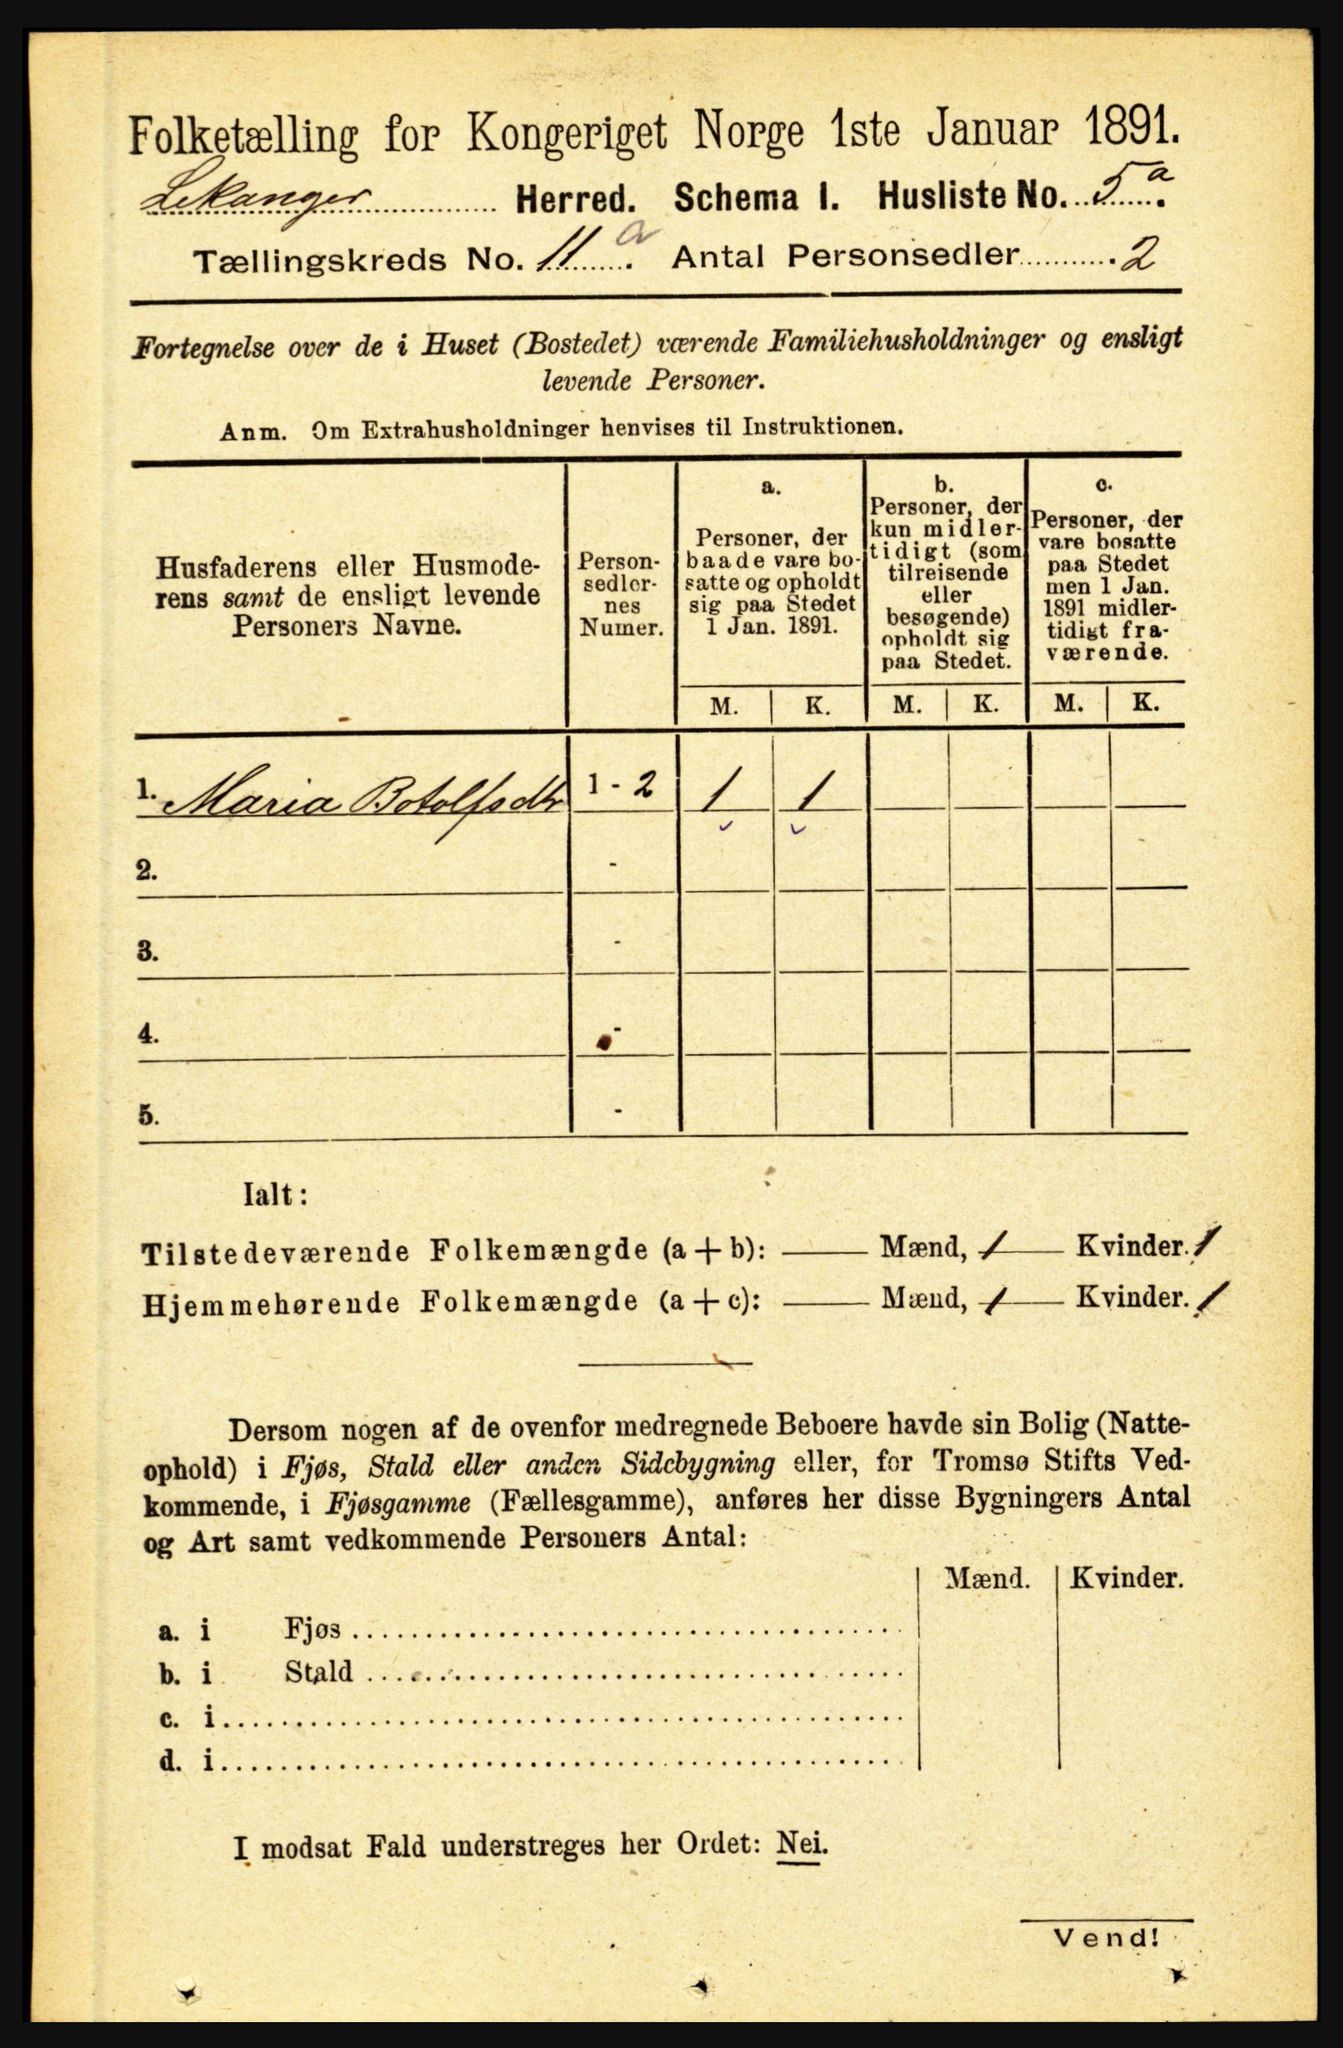 Folketælling for Kongeriget Norge 1ste Januar 1891.
Lekanger Herred. Schema I. Husliste No. 5a.
Tællingskreds No. 11a. Antal Personsedler 2
Fortegnelse over de i Huset (Bostedet) værende Familiehusholdninger og ensligt
levende Personer.
Anm. Om Extrahusholdninger henvises til Instruktionen.
Husfaderens eller Husmode-
rens samt de ensligt levende
Personers Navne.
Person-
sedler-
nes
Numer.
a.
Personer, der
baade vare bo-
satte og opholdt
sig paa Stedet
1 Jan. 1891.
b.
Personer, der
kun midler-
tidigt (som
tilreisende
eller
besøgende)
opholdt sig
paa Stedet.
c.
Personer, der
vare bosatte
paa Stedet
men 1 Jan.
1891 midler-
tidigt fra-
værende.
M. K. M. K. M. K.
1. Maria Botolfsdtr 1 - 2 1 1
2. -
3. -
4. -
5. -
Ialt:
Tilstedeværende Folkemængde (a + b): Mænd, 1 Kvinder. 1
Hjemmehørende Folkemængde (a + c): Mænd, 1 Kvinder. 1
Dersom nogen af de ovenfor medregnede Beboere havde sin Bolig (Natte-
ophold) i Fjøs, Stald eller anden Sidebygning eller, for Tromsø Stifts Ved-
kommende, i Fjøsgamme (Fællesgamme), anføres her disse Bygningers Antal
og Art samt vedkommende Personers Antal:
Mænd. Kvinder.
a. i Fjøs
b. i Stald
c. i
d. i
I modsat Fald understreges her Ordet: Nei.
Vend!